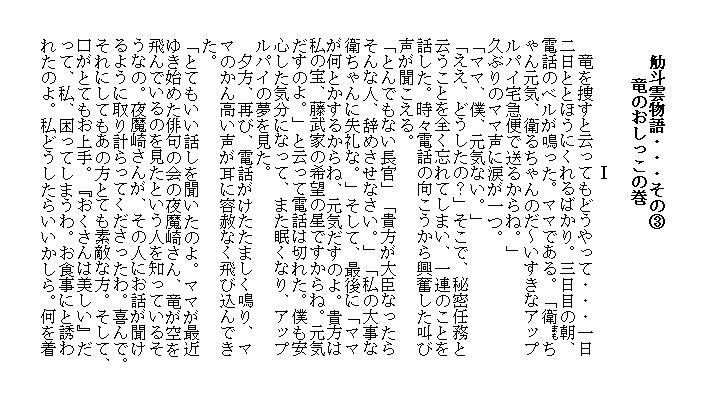 觔斗雲物語・・・その③
竜のおしっこの巻
Ⅰ
　竜を捜すと云ってもどうやって・・・一日
二日ととほうにくれるばかり。三日目の朝、
電話のベルが鳴った。ママである。「衛ち
ゃん元気、衛るちゃんのだ～いすきなアップ
ルパイ宅急便で送るからね。」
久ぶりのママ声に涙が一つ。
「ママ、僕、元気ない。」
「ええ、どうしたの？」そこで、秘密任務と
云うことを全く忘れてしまい、一連のことを
話した。時々電話の向こうから興奮した叫び
声が聞こえる。
「とんでもない長官」「貴方が大臣なったら
そんな人、辞めさせなさい。」「私の大事な
衛ちゃんに失礼な。」そして、最後に「ママ
が何とかするからね、元気だすのよ。貴方は
私の宝、藤武家の希望の星ですからね。元気
だすのよ。」と云って電話は切れた。僕も安
心した気分になって、また眠くなり、アップ
ルパイの夢を見た。
　夕方、再び、電話がけたたましく鳴り、マ
マのかん高い声が耳に容赦なく飛び込んでき
た。
「とてもいい話しを聞いたのよ。ママが最近
ゆき始めた俳句の会の夜魔崎さん、竜が空を
飛んでいるのを見たという人を知っているそ
うなの。夜魔崎さんが、その人にお話が聞け
るように取り計らってくださったわ。喜んで。
それにしてもあの方とても素敵な方。そして、
口がとてもお上手。『おくさんは美しい』だ
って、私、困ってしまうわ。お食事にと誘わ
れたのよ。私どうしたらいいかしら。何を着